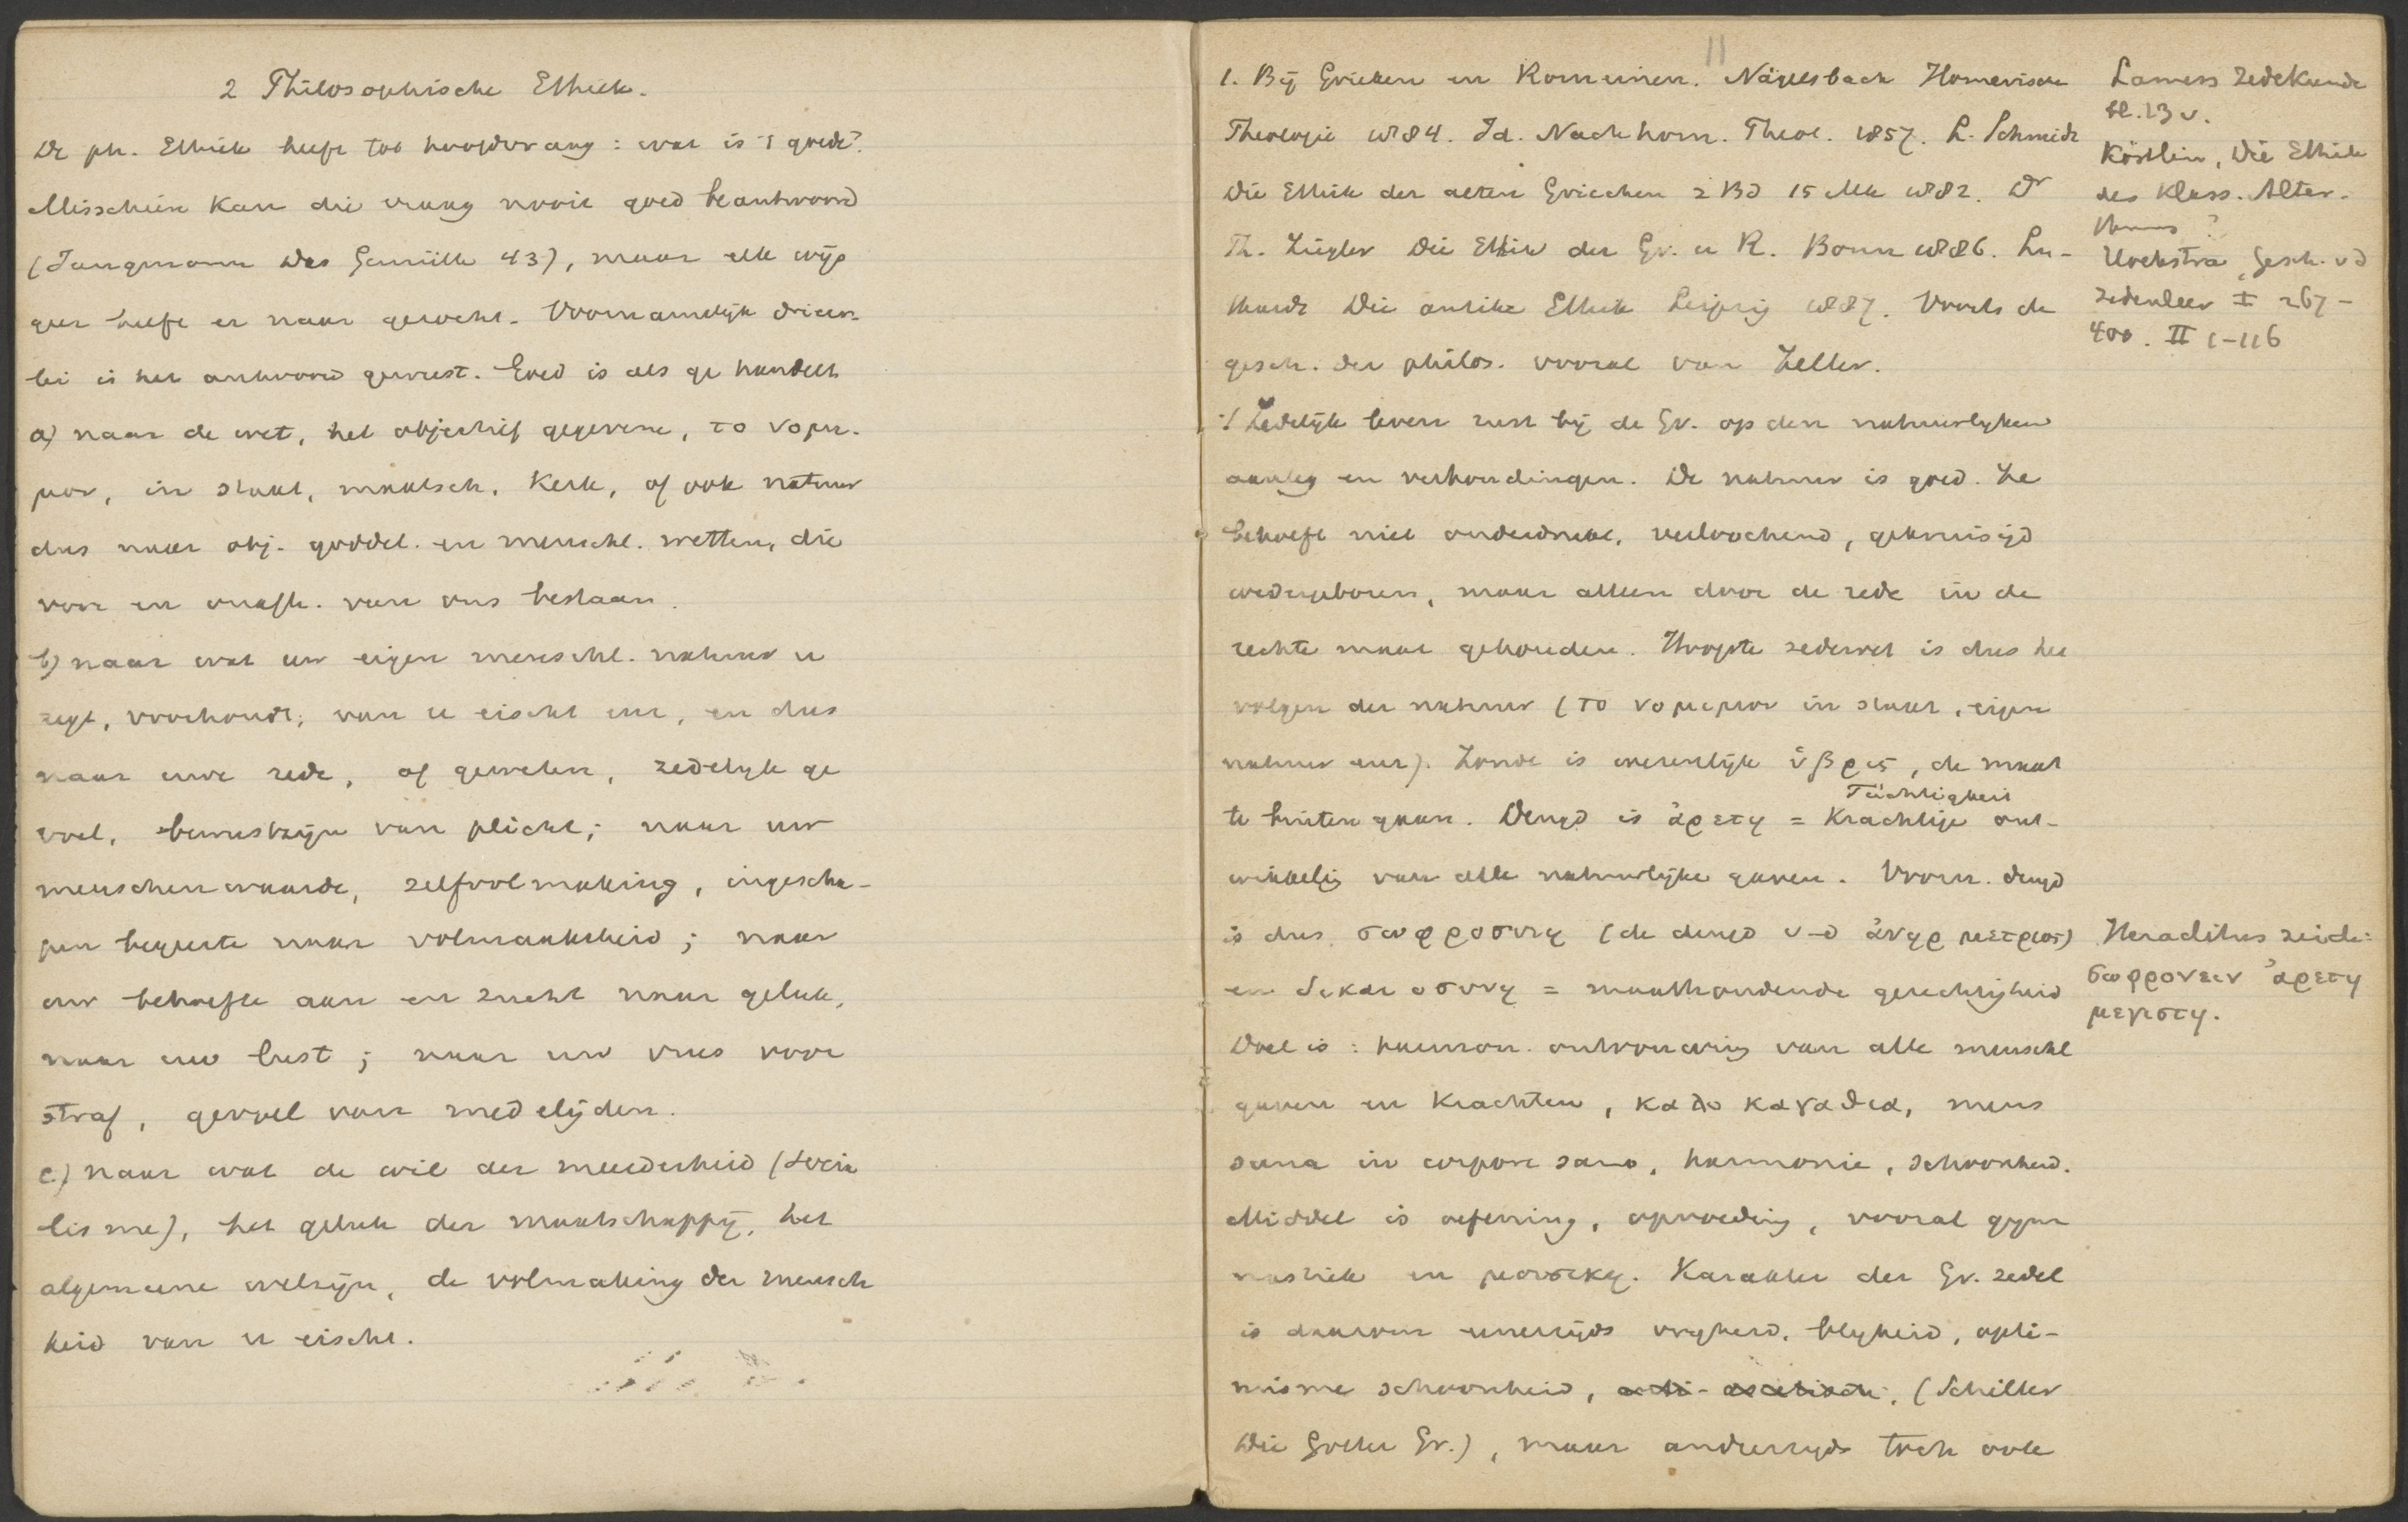 2 Philosophische Ethiek.
De ph. Ethiek heeft tot hoofdvraag: wat is 't goede?
Misschien kan die vraag nooit goed beantwoord
(Jungmann Das Gemüth 43), maar elk wijs
geer heeft er naar gezocht. Voornamelijk drieër-
lei is het antwoord geweest. Goed is als ge handelt
a) naar de wet, het objectief gegevene, το νομι-
μον, in staat, maatsch. Kerk, of ook natuur
dus naar obj. goddel. en menschl. wetten, die
voor en onafh. van ons bestaan.
b) naar wat uw eigen menschl. natuur u
zegt, voorhoudt, van u eischt enz, en dus
naar uwe rede, of geweten, zedelijk ge
voel, bewustzijn van plicht; naar uw
menschenwaarde, zelfvolmaking, ingescha-
pen begeerte naar volmaaktheid; naar
uw behoefte aan en zucht naar geluk,
naar uw lust; naar uw vrees voor
straf, gevoel van medelijden.
c) naar wat de wil der meerderheid (socia
lisme), het geluk der maatschappij, het
algemeene welzijn, de volmaking der mensch
heid van u eischt.
11
1. Bij Grieken en Romeinen. Nägelsbach Homerische
Theologie 1884. Id. Nachhom. Theol. 1857. L. Schmidt
Die Ethik der alten Griechen 2 Bd 15 Mk 1882. Dr
Th. Ziegler Die Ethik der Gr. u R. Bonn 1886. Lu-
thardt Die antike Ethik Leipzig 1887. Voorts de
gesch. der philos. vooral van Zeller.
't Zedelijk leven rust bij de Gr. op den natuurlyken
aanleg en verhoudingen. De natuur is goed. Ze
behoeft niet onderdrukt, verloochend, gekruisigd
wedergeboren, maar alleen door de rede in de
rechte maat gehouden. Hoogste zedewet is dus het
volgen der natuur (το νομιμον in staat, eigen
natuur enz). Zonde is wezenlijk ὑβρις, de maat
te buiten gaan. Deugd is ἀρετη = Krachtige ont-
Tüchtigkeit
wikkelig van alle natuurlijke gaven. Voorn. deugd
is dus σωφροσυνη (de deugd v-d ἀνηρ μετριος)
en δικαιοσυνη = maathoudende gerechtigheid
Doel is: harmon. ontvouwing van alle menschl
gaven en krachten, καλοκαγαθια, mens
sana in corpore sano, harmonie, schoonheid.
Middel is oefening, opvoeding, vooral gym
nastiek en μουσικη. Karakter der Gr. zedel
is daarom eenerzijds vryheid, blyheid, opti-
misme schoonheid, (Schiller
Die Götter Gr.), maar anderzyds toch ook
Lamers Zedekunde
bl. 13 v.
Köstlin, Die Ethik
des Klass. Alter-
thums?
Hoekstra, Gesch. v d
Zedenleer I 267-
400. II 1-116
Heraclitus zeide:
σωφρονειν ἀρετη
μεγιστη.